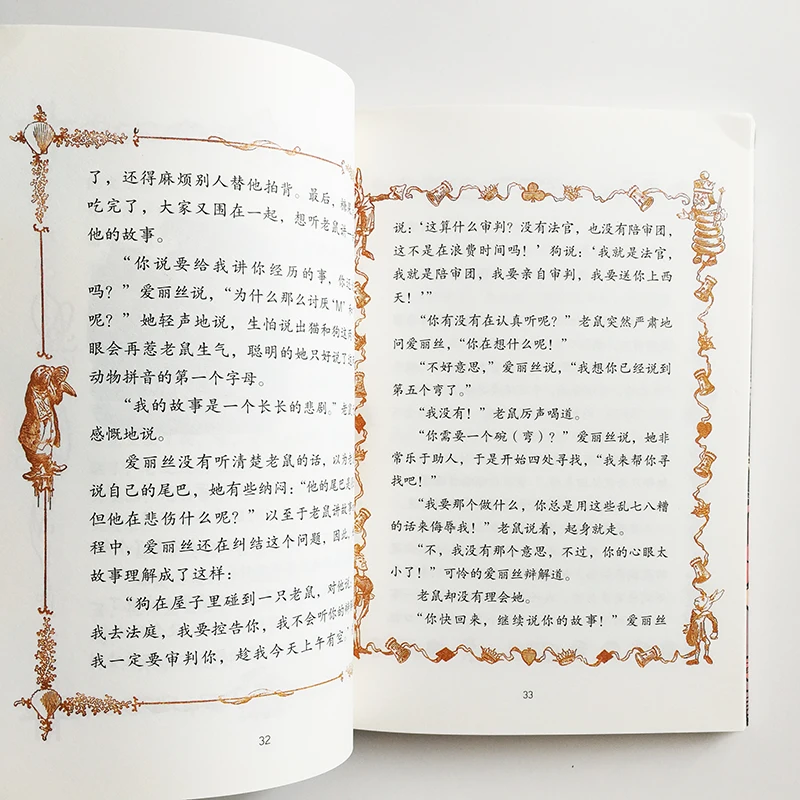 了，还得麻烦别人替他拍背。最后，
吃完了，大家又围在一起，想听老鼠讲一
他的故事。
“你说要给我讲你经历的事，你
吗？”爱丽丝说，“为什么那么讨厌‘M’
呢？”她轻声地说，生怕说出猫和狗这
眼会再惹老鼠生气，聪明的她只好说了
动物拼音的第一个字母。
“我的故事是一个长长的悲剧。”老
感慨地说。
爱丽丝没有听清楚老鼠的话，以为
说自己的尾巴，她有些纳闷：“他的尾巴
但他在悲伤什么呢？”以至于老鼠讲故事
程中，爱丽丝还在纠结这个问题，因此，
故事理解成了这样：
“狗在屋子里碰到一只老鼠，对他说
我去法庭，我要控告你，我不会听你的
我一定要审判你，趁我今天上午有空。
32
说：‘这算什么审判？没有法官，也没有陪审团，
这不是在浪费时间吗！’狗说：‘我就是法官，
我就是陪审团，我要亲自审判，我要送你上西
天！’”
“你有没有在认真听呢？”老鼠突然严肃地
问爱丽丝，“你在想什么呢！”
“不好意思，”爱丽丝说，“我想你已经说到
第五个弯了。”
“我没有！”老鼠厉声喝道。
“你需要一个碗（弯）？”爱丽丝说，她非
常乐于助人，于是开始四处寻找，“我来帮你寻
找吧！”
“我要那个做什么，你总是用这些乱七八糟
的话来侮辱我！”老鼠说着，起身就走。
“不，我没有那个意思，不过，你的心眼太
小了！”可怜的爱丽丝辩解道。
老鼠却没有理会她。
“你快回来，继续说你的故事！”爱丽丝
33